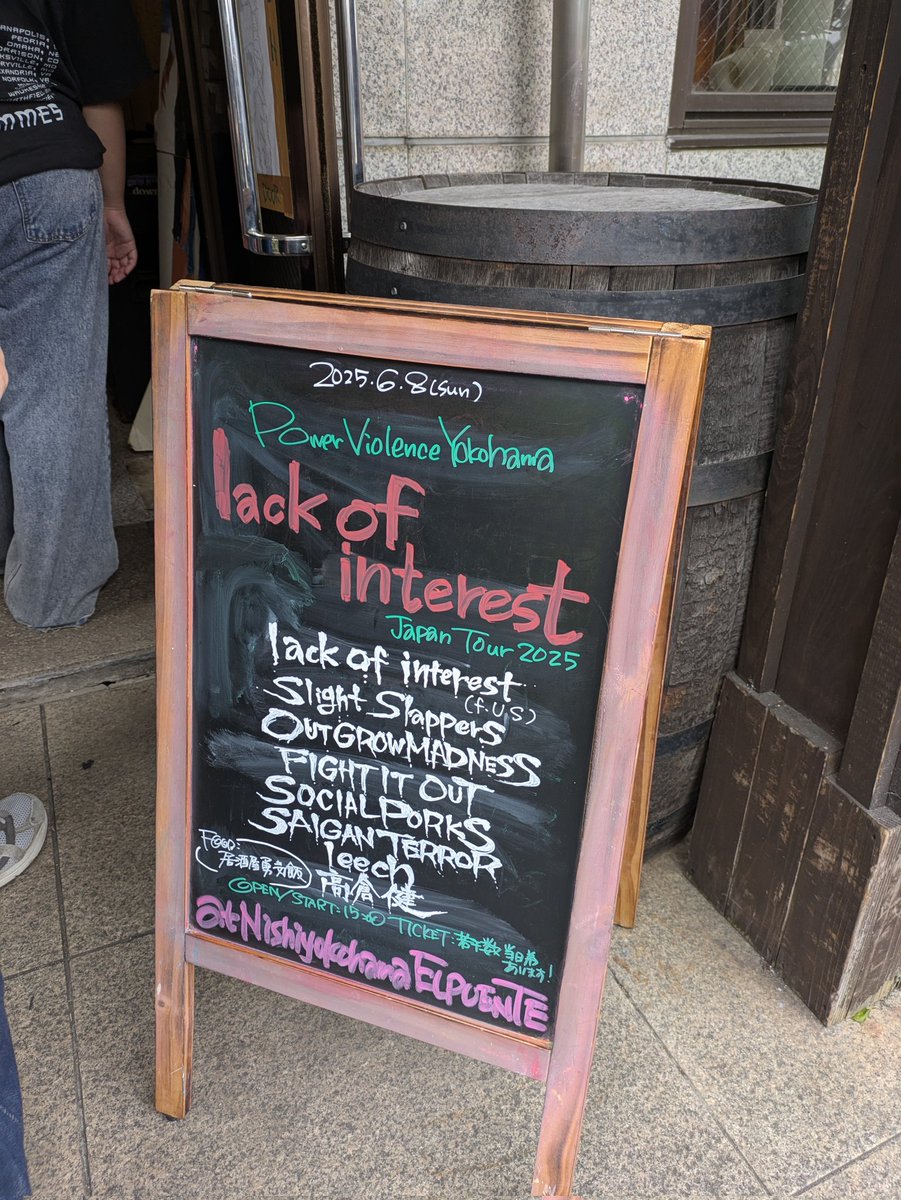 ANAPOLIS,
PEORIA,
OMAHA,
NORFOLK,
MMES
2025.6.8(sun)
Power Violence Yokohama
lack of
interest
Japan Tour 2025
lack of interest
(f.U.S)
Slight Slappers
OUTGROWMADNESS
FIGHT IT OUT
SOCIAL PORKS
SAIGAN TERROR
leech
高倉健
FOOD:
居酒屋
OPEN/START:15:00 TICKET:若干数当日券
あります!
at Nishiyokohama ELPUENTE